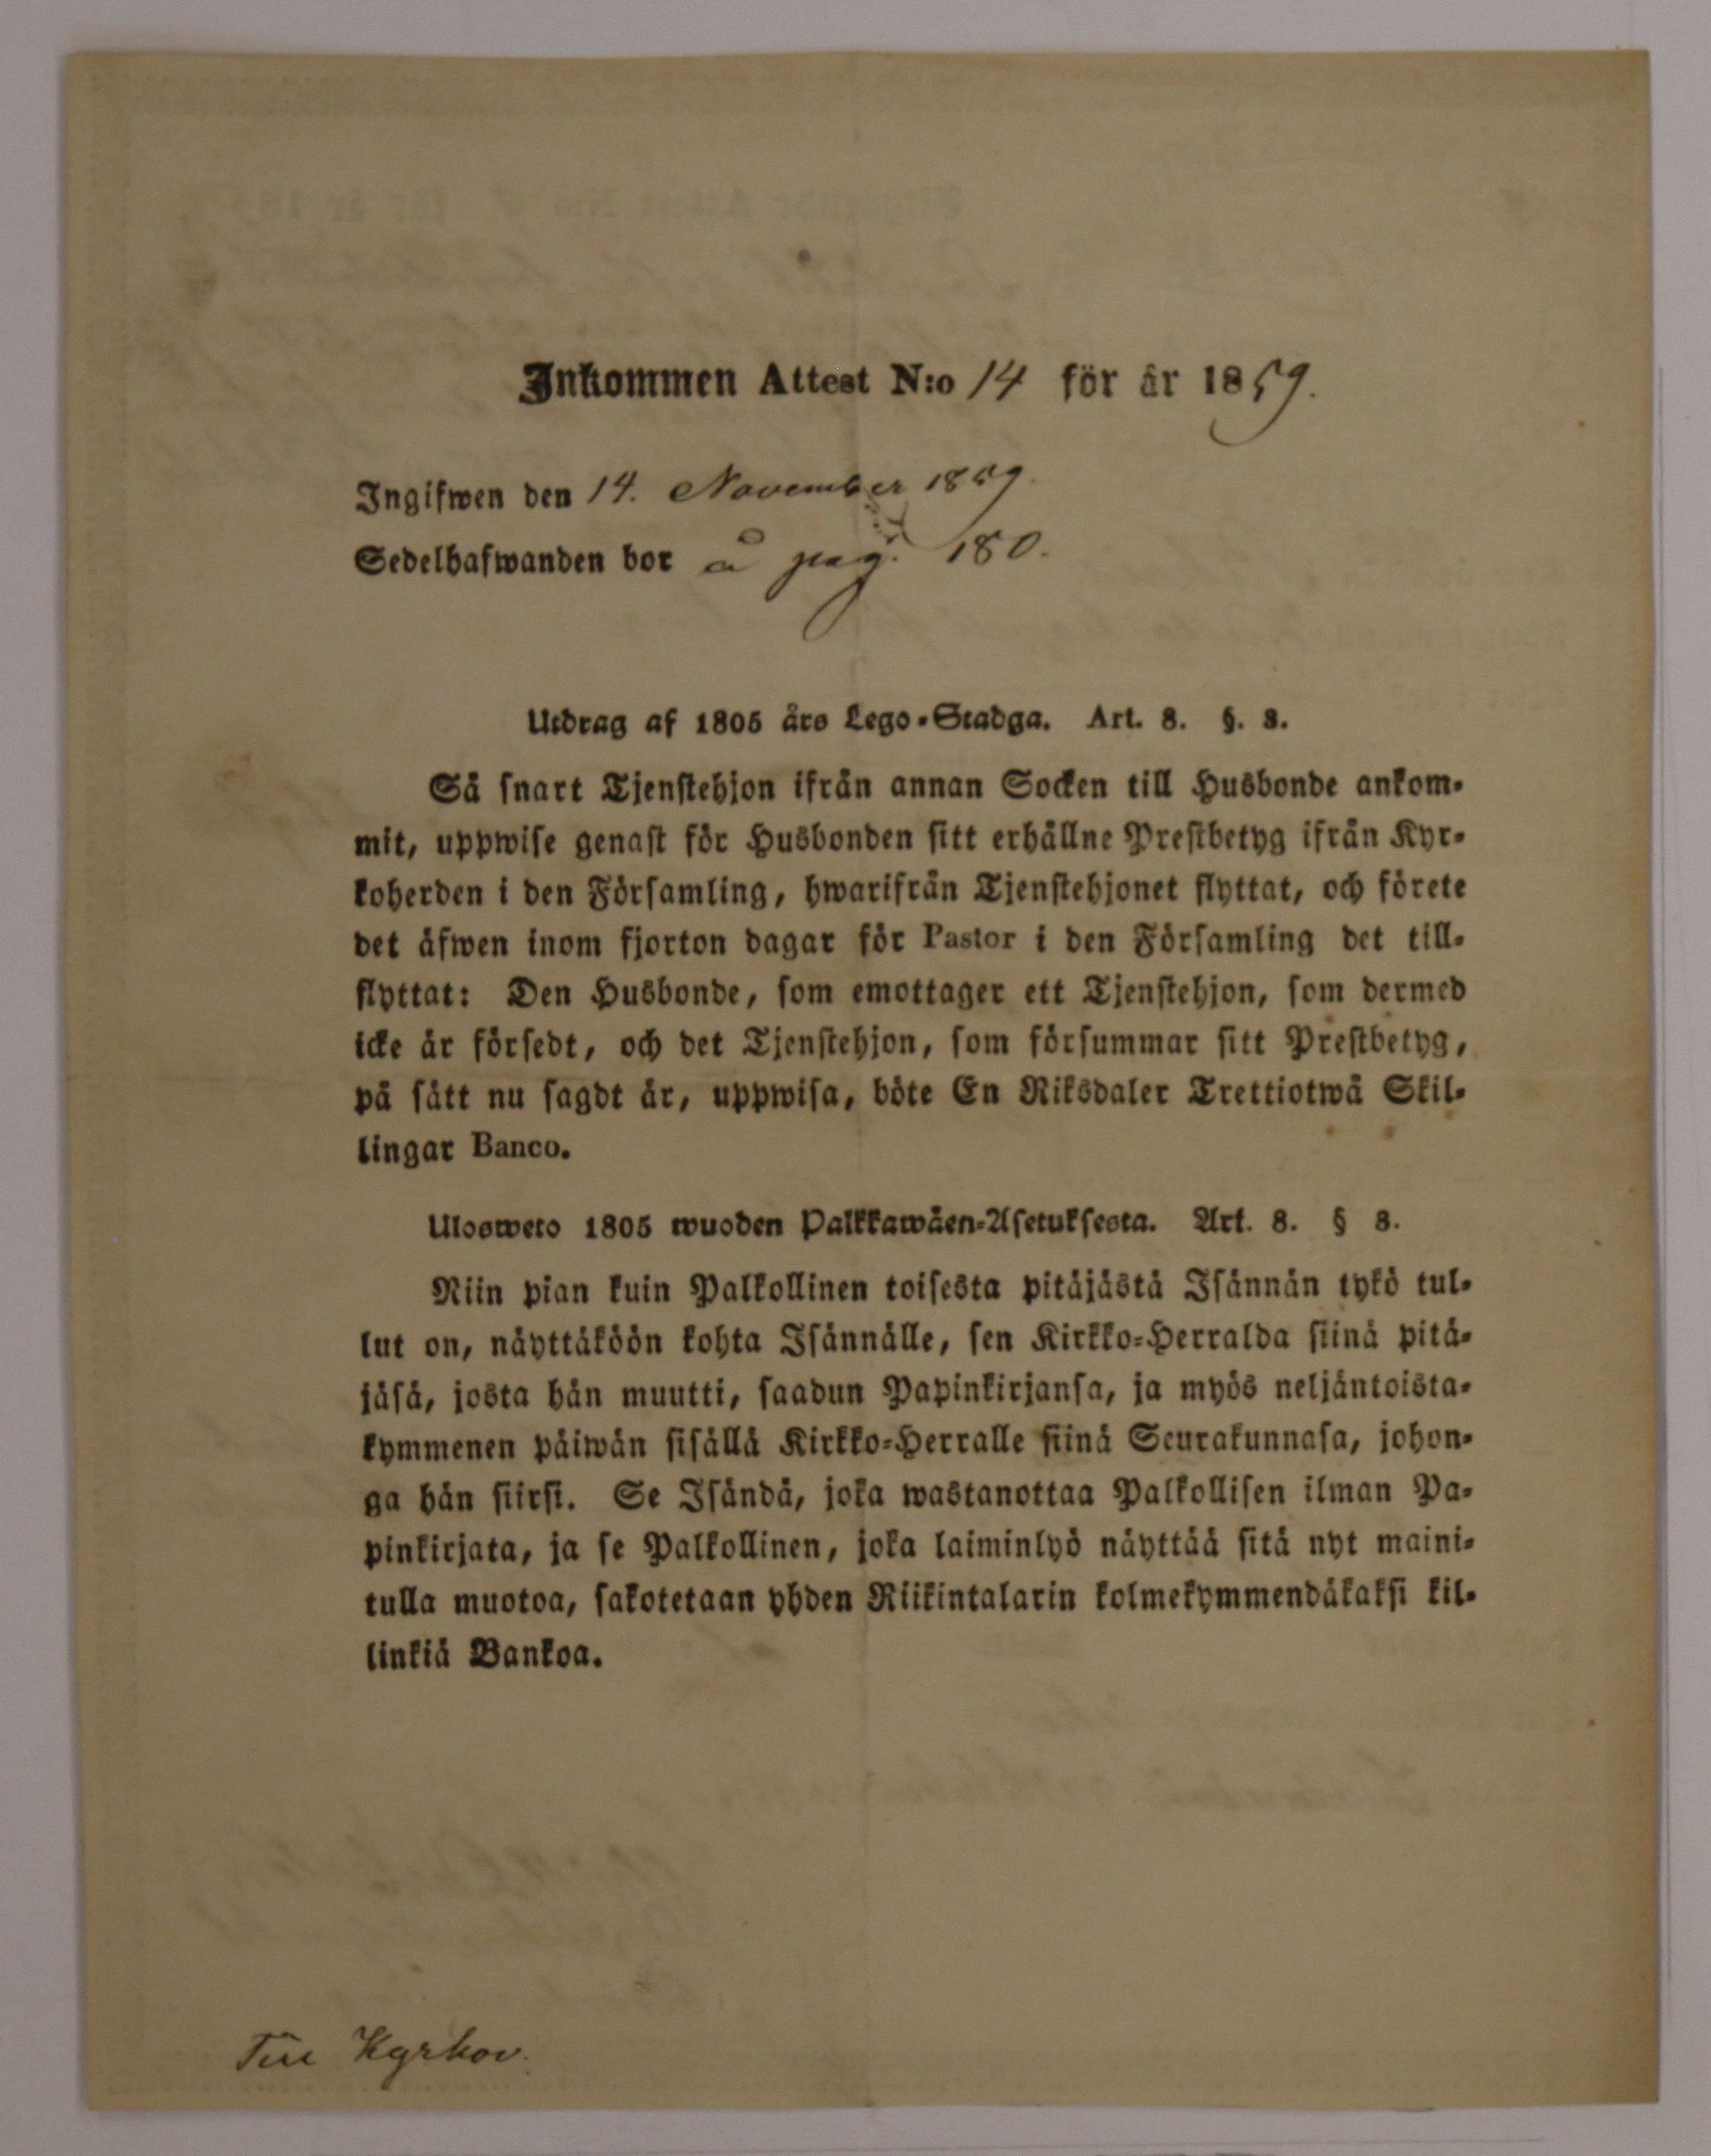 Inkommen Attest N:o 14 för år 1859.
Ingifwen den 14. November 1859.
Sedelhafwanden bor å pag. 180.
Utdrag af 1805 års Lego-Stadga. Art. 8. §. 8.
Så snart Tjenstehjon ifrån annan Socken till Husbonde ankom-
mit, uppwise genast för Husbonden sitt erhållne Prestbetyg ifrån Kyr-
koherden i den Församling, hwarifrån Tjenstehjonet flyttat, och förete
det äfwen inom fjorton dagar för Pastor i den Församling det till-
flyttat: Den Husbonde, som emottager ett Tjenstehjon, som dermed
icke är försedt, och det Tjenstehjon, som försummar sitt Prestbetyg,
på sätt nu sagdt är, uppwisa, böte En Riksdaler Trettiotwå Skil-
lingar Banco.
Ulosweto 1805 wuoden Palkkawäen-Asetuksesta. Art. 8. § 8.
Niin pian kuin Palkollinen toisesta pitäjästä Isännän tykö tul-
lut on, näyttäköön kohta Isännälle, sen Kirkko-Herralda siinä pitä-
jäsä, josta hän muutti, saadun Papinkirjansa, ja myös neljäntoista-
kymmenen päiwän sisällä Kirkko-Herralle siinä Seurakunnasa, johon-
ga hän siirsi. Se Isändä, joka wastanottaa Palkollisen ilman Pa-
pinkirjata, ja se Palkollinen, joka laiminlyö näyttää sitä nyt maini-
tulla muotoa, sakotetaan yhden Riikintalarin kolmekymmendäkaksi kil-
linkiä Bankoa.
Kyrkov.